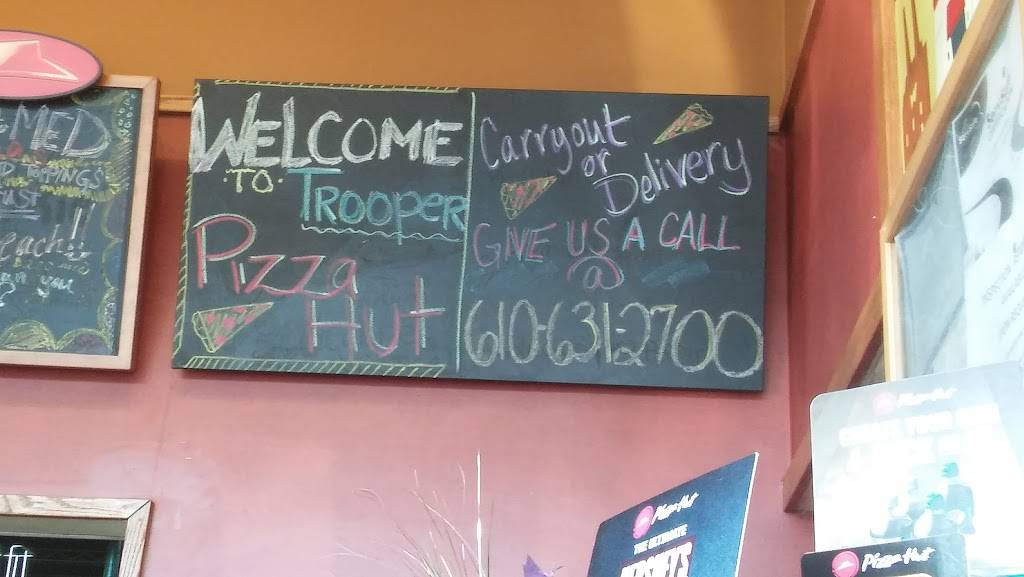 WELCOME
TO
TROOPER
PIZZA
HUT
Carryout
or
Delivery
GIVE US A CALL
@
610-631-2700
MED
TOPPINGS
each!!
you
?
Pizza Hut
THE ULTIMATE
HERSHEY'S
Pizza Hut
Pizza Hut